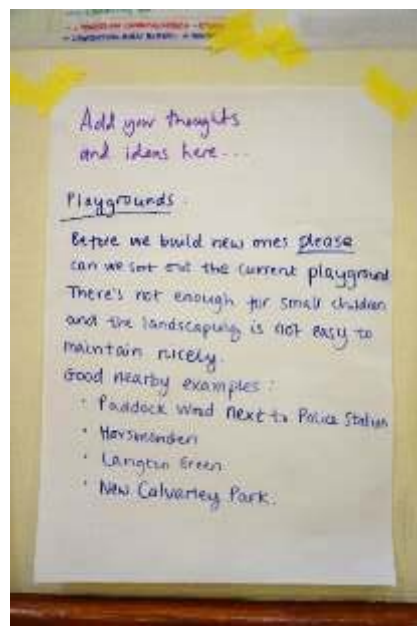 Add your thoughts
and ideas here...
Playgrounds.
Before we build new ones please
can we sort out the current playground
There's not enough for small children
and the landscaping is not easy to
maintain nicely.
Good nearby examples:
· Paddock Wood next to Police Station
· Horsmonden
· Langton Green
· New Calverley Park.